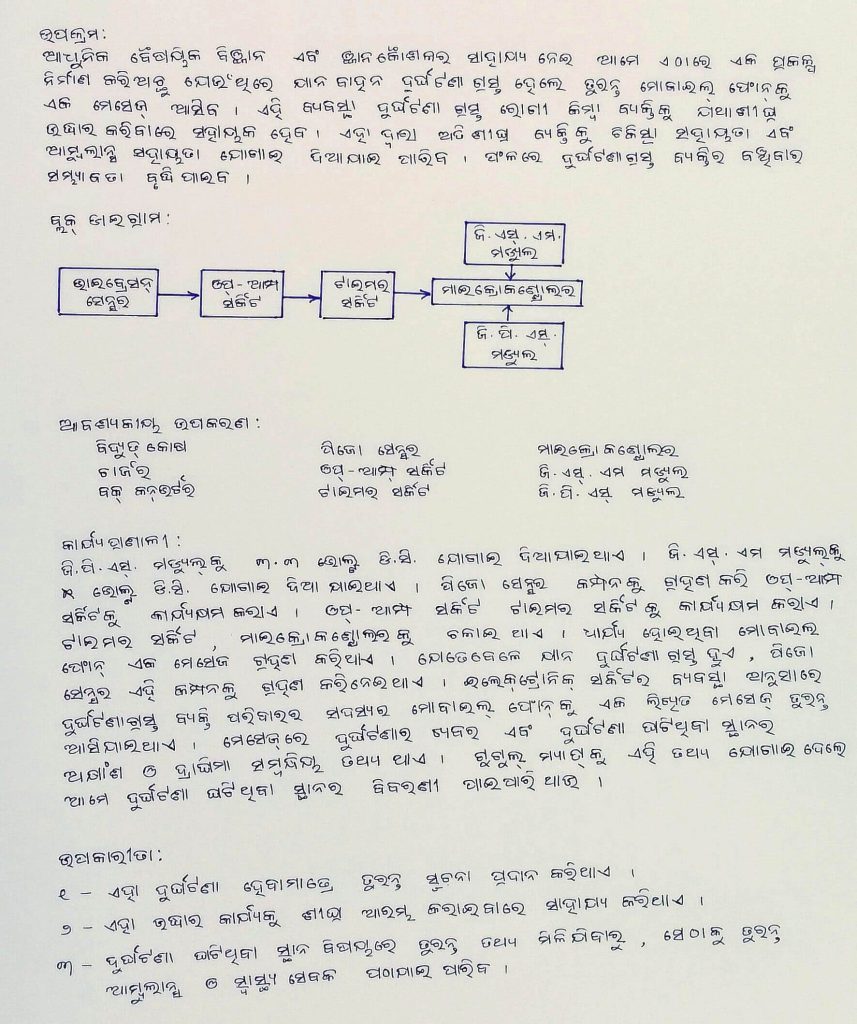 ଉପକ୍ରମ:
ଆଧୁନିକ ବୈଷୟିକ ବିଜ୍ଞାନ ଏବଂ ଜ୍ଞାନକୌଶଳର ସାହାଯ୍ୟ ନେଇ ଆମେ ଏଠାରେ ଏକ ପ୍ରକଳ୍ପ
ନିର୍ମାଣ କରିଅଛୁ ଯେଉଁଥିରେ ଯାନ ବାହନ ଦୁର୍ଘଟଣା ଗ୍ରସ୍ତ ହେଲେ ତୁରନ୍ତ ମୋବାଇଲ୍ ଫୋନ୍‌କୁ
ଏକ ମେସେଜ୍ ଆସିବ । ଏହି ବ୍ୟବସ୍ଥା ଦୁର୍ଘଟଣା ଗ୍ରସ୍ତ ରୋଗୀ କିମ୍ବା ବ୍ୟକ୍ତିକୁ ଯଥାଶୀଘ୍ର
ଉଦ୍ଧାର କରିବାରେ ସହାୟକ ହେବ । ଏହା ଦ୍ୱାରା ଅତି ଶୀଘ୍ର ବ୍ୟକ୍ତିକୁ ଚିକିତ୍ସା ସହାୟତା ଏବଂ
ଆମ୍ବୁଲାନ୍ସ ସହାୟତା ଯୋଗାଇ ଦିଆଯାଇ ପାରିବ । ଫଳରେ ଦୁର୍ଘଟଣାଗ୍ରସ୍ତ ବ୍ୟକ୍ତିର ବଞ୍ଚିବାର
ସମ୍ଭାବତା ବୃଦ୍ଧି ପାଇବ ।
ବ୍ଲକ୍ ଡାଇଗ୍ରାମ:
ଜି. ଏସ୍. ଏମ.
ମଡ୍ୟୁଲ
ଭାଇବ୍ରେସନ୍
ସେନ୍ସର
ଓପ୍-ଆମ୍ପ
ସର୍କିଟ
ଟାଇମର
ସର୍କିଟ
ମାଇକ୍ରୋକଣ୍ଟ୍ରୋଲର
ଜି. ପି. ଏସ୍.
ମଡ୍ୟୁଲ
ଆବଶ୍ୟକୀୟ ଉପକରଣ:
ବିଦ୍ୟୁତ୍ କୋଷ ପିଜୋ ସେନ୍ସର ମାଇକ୍ରୋକଣ୍ଟ୍ରୋଲର
ଚାର୍ଜର ଓପ୍-ଆମ୍ପ୍ ସର୍କିଟ ଜି. ଏସ୍. ଏମ ମଡ୍ୟୁଲ
ବକ୍ କନ୍‌ଭର୍ଟର ଟାଇମର ସର୍କିଟ ଜି. ପି. ଏସ୍ ମଡ୍ୟୁଲ
କାର୍ଯ୍ୟପ୍ରଣାଳୀ:
ଜି.ପି.ଏସ୍. ମଡ୍ୟୁଲ୍‌କୁ ୩.୩ ଭୋଲ୍ଟ ଡି.ସି. ଯୋଗାଇ ଦିଆଯାଇଥାଏ । ଜି.ଏସ୍.ଏମ ମଡ୍ୟୁଲ୍‌କୁ
୫ ଭୋଲ୍ଟ ଡି.ସି. ଯୋଗାଇ ଦିଆ ଯାଇଥାଏ । ପିଜୋ ସେନ୍ସର କମ୍ପନକୁ ଗ୍ରହଣ କରି ଓପ୍-ଆମ୍ପ
ସର୍କିଟକୁ କାର୍ଯ୍ୟକ୍ଷମ କରାଏ । ଓପ୍-ଆମ୍ପ ସର୍କିଟ ଟାଇମର ସର୍କିଟକୁ କାର୍ଯ୍ୟକ୍ଷମ କରାଏ ।
ଟାଇମର ସର୍କିଟ, ମାଇକ୍ରୋକଣ୍ଟ୍ରୋଲରକୁ ଚଳାଇ ଥାଏ । ଧାର୍ଯ୍ୟ ହୋଇଥିବା ମୋବାଇଲ
ଫୋନ୍ ଏକ ମେସେଜ ଗ୍ରହଣ କରିଥାଏ । ଯେତେବେଳେ ଯାନ ଦୁର୍ଘଟଣା ଗ୍ରସ୍ତ ହୁଏ, ପିଜୋ
ସେନ୍ସର ଏହି କମ୍ପନକୁ ଗ୍ରହଣ କରିନେଇଥାଏ । ଇଲେକ୍ଟ୍ରୋନିକ୍ ସର୍କିଟର ବ୍ୟବସ୍ଥା ଆନୁସାରେ
ଦୁର୍ଘଟଣାଗ୍ରସ୍ତ ବ୍ୟକ୍ତି ପରିବାରର ସଦସ୍ୟର ମୋବାଇଲ୍ ଫୋନ୍‌କୁ ଏକ ଲିଖିତ ମେସେଜ୍ ତୁରନ୍ତ
ଆସିଯାଇଥାଏ । ମେସେଜ୍‌ରେ ଦୁର୍ଘଟଣାର ଖବର ଏବଂ ଦୁର୍ଘଟଣା ଘଟିଥିବା ସ୍ଥାନର
ଅକ୍ଷାଂଶ ଓ ଦ୍ରାଘିମା ସମ୍ବନ୍ଧିୟ ତଥ୍ୟ ଥାଏ । ଗୁଗୁଲ୍ ମ୍ୟାପ୍‌କୁ ଏହି ତଥ୍ୟ ଯୋଗାଇ ଦେଲେ
ଆମେ ଦୁର୍ଘଟଣା ଘଟିଥିବା ସ୍ଥାନର ବିବରଣୀ ପାଇପାରିଥାଉ ।
ଉପକାରୀତା:
୧ - ଏହା ଦୁର୍ଘଟଣା ହେବାମାତ୍ରେ ତୁରନ୍ତ ସୂଚନା ପ୍ରଦାନ କରିଥାଏ ।
୨ - ଏହା ଉଦ୍ଧାର କାର୍ଯ୍ୟକୁ ଶୀଘ୍ର ଆରମ୍ଭ କରାଇବାରେ ସାହାଯ୍ୟ କରିଥାଏ ।
୩ - ଦୁର୍ଘଟଣା ଘଟିଥିବା ସ୍ଥାନ ବିଷୟରେ ତୁରନ୍ତ ତଥ୍ୟ ମିଳିଯିବାରୁ, ସେଠାକୁ ତୁରନ୍ତ
ଆମ୍ବୁଲାନ୍ସ ଓ ସ୍ୱାସ୍ଥ୍ୟ ସେବକ ପଠାଯାଇ ପାରିବ ।